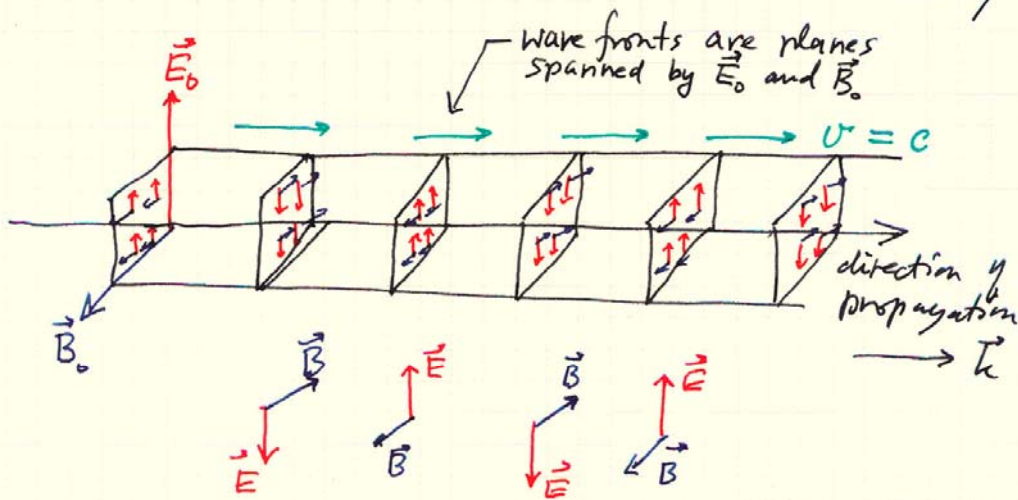 wave fronts are planes
spanned by E⃗₀ and B⃗₀
E⃗₀
v = c
direction of
propagation
k⃗
B⃗₀
B⃗
E⃗
E⃗
B⃗
B⃗
E⃗
E⃗
B⃗